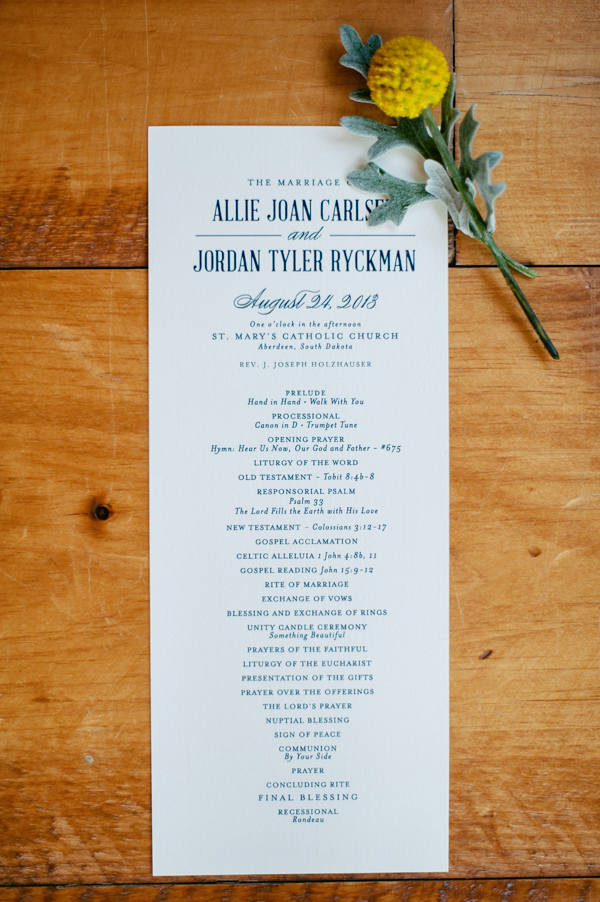 THE MARRIAGE
ALLIE JOAN
and
JORDAN TYLER RYCKMAN
August 24, 2013
One o'clock in the afternoon
ST. MARY'S CATHOLIC CHURCH
Aberdeen, South Dakota
REV. J. JOSEPH HOLZHAUSER
PRELUDE
Hand in Hand • Walk With You
PROCESSIONAL
Canon in D • Trumpet Tune
OPENING PRAYER
Hymn: Hear Us Now, Our God and Father – #675
LITURGY OF THE WORD
OLD TESTAMENT – Tobit 8:4b-8
RESPONSORIAL PSALM
Psalm 33
The Lord Fills the Earth with His Love
NEW TESTAMENT – Colossians 3:12-17
GOSPEL ACCLAMATION
CELTIC ALLELUIA 1 John 4:8b, 11
GOSPEL READING John 15:9-12
RITE OF MARRIAGE
EXCHANGE OF VOWS
BLESSING AND EXCHANGE OF RINGS
UNITY CANDLE CEREMONY
Something Beautiful
PRAYERS OF THE FAITHFUL
LITURGY OF THE EUCHARIST
PRESENTATION OF THE GIFTS
PRAYER OVER THE OFFERINGS
THE LORD'S PRAYER
NUPTIAL BLESSING
SIGN OF PEACE
COMMUNION
By Your Side
PRAYER
CONCLUDING RITE
FINAL BLESSING
RECESSIONAL
Rondeau